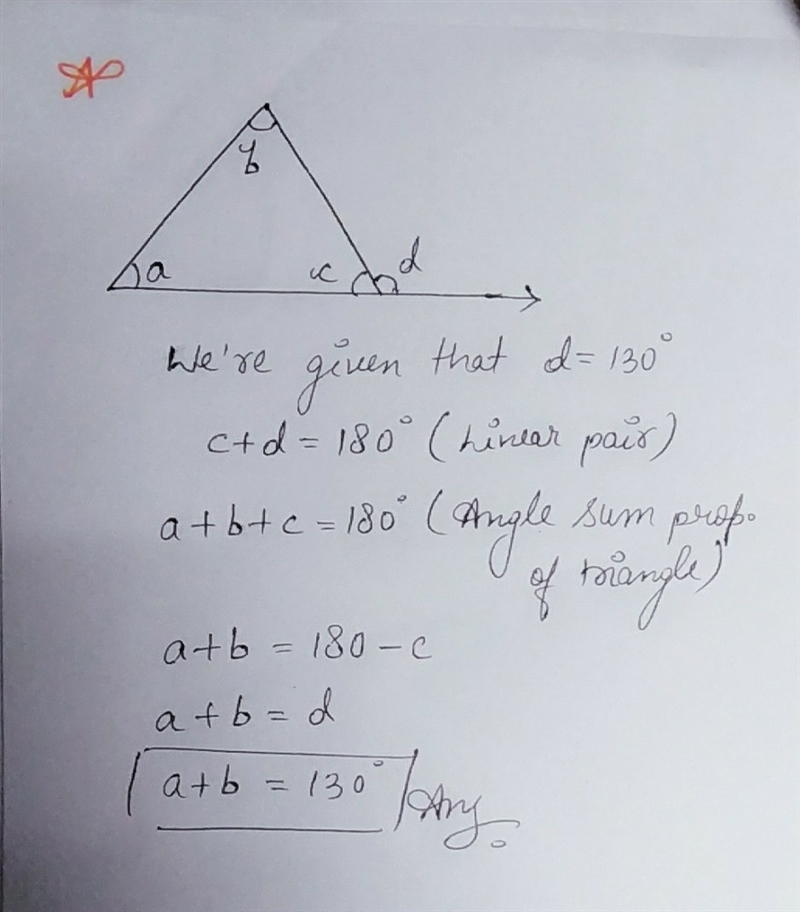 b
a c d
We're given that d = 130°
c+d = 180° (Linear pair)
a+b+c = 180° (Angle sum prop.
of triangle)
a+b = 180 - c
a+b = d
a+b = 130° Ans.